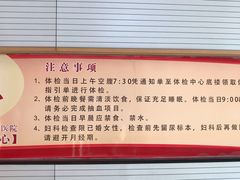 注意事项
1、体检当日上午空腹7:30凭通知单至体检中心底楼领取体
指引单进行体检。
2、体检前晚餐需清淡饮食，保证充足睡眠，体检当日9:00
请务必完成抽血项目。
3、体检当日早晨应禁食、禁水。
4、妇科检查限已婚女性，检查前先留尿标本，妇科后再做
请避开月经期。
医院
心）